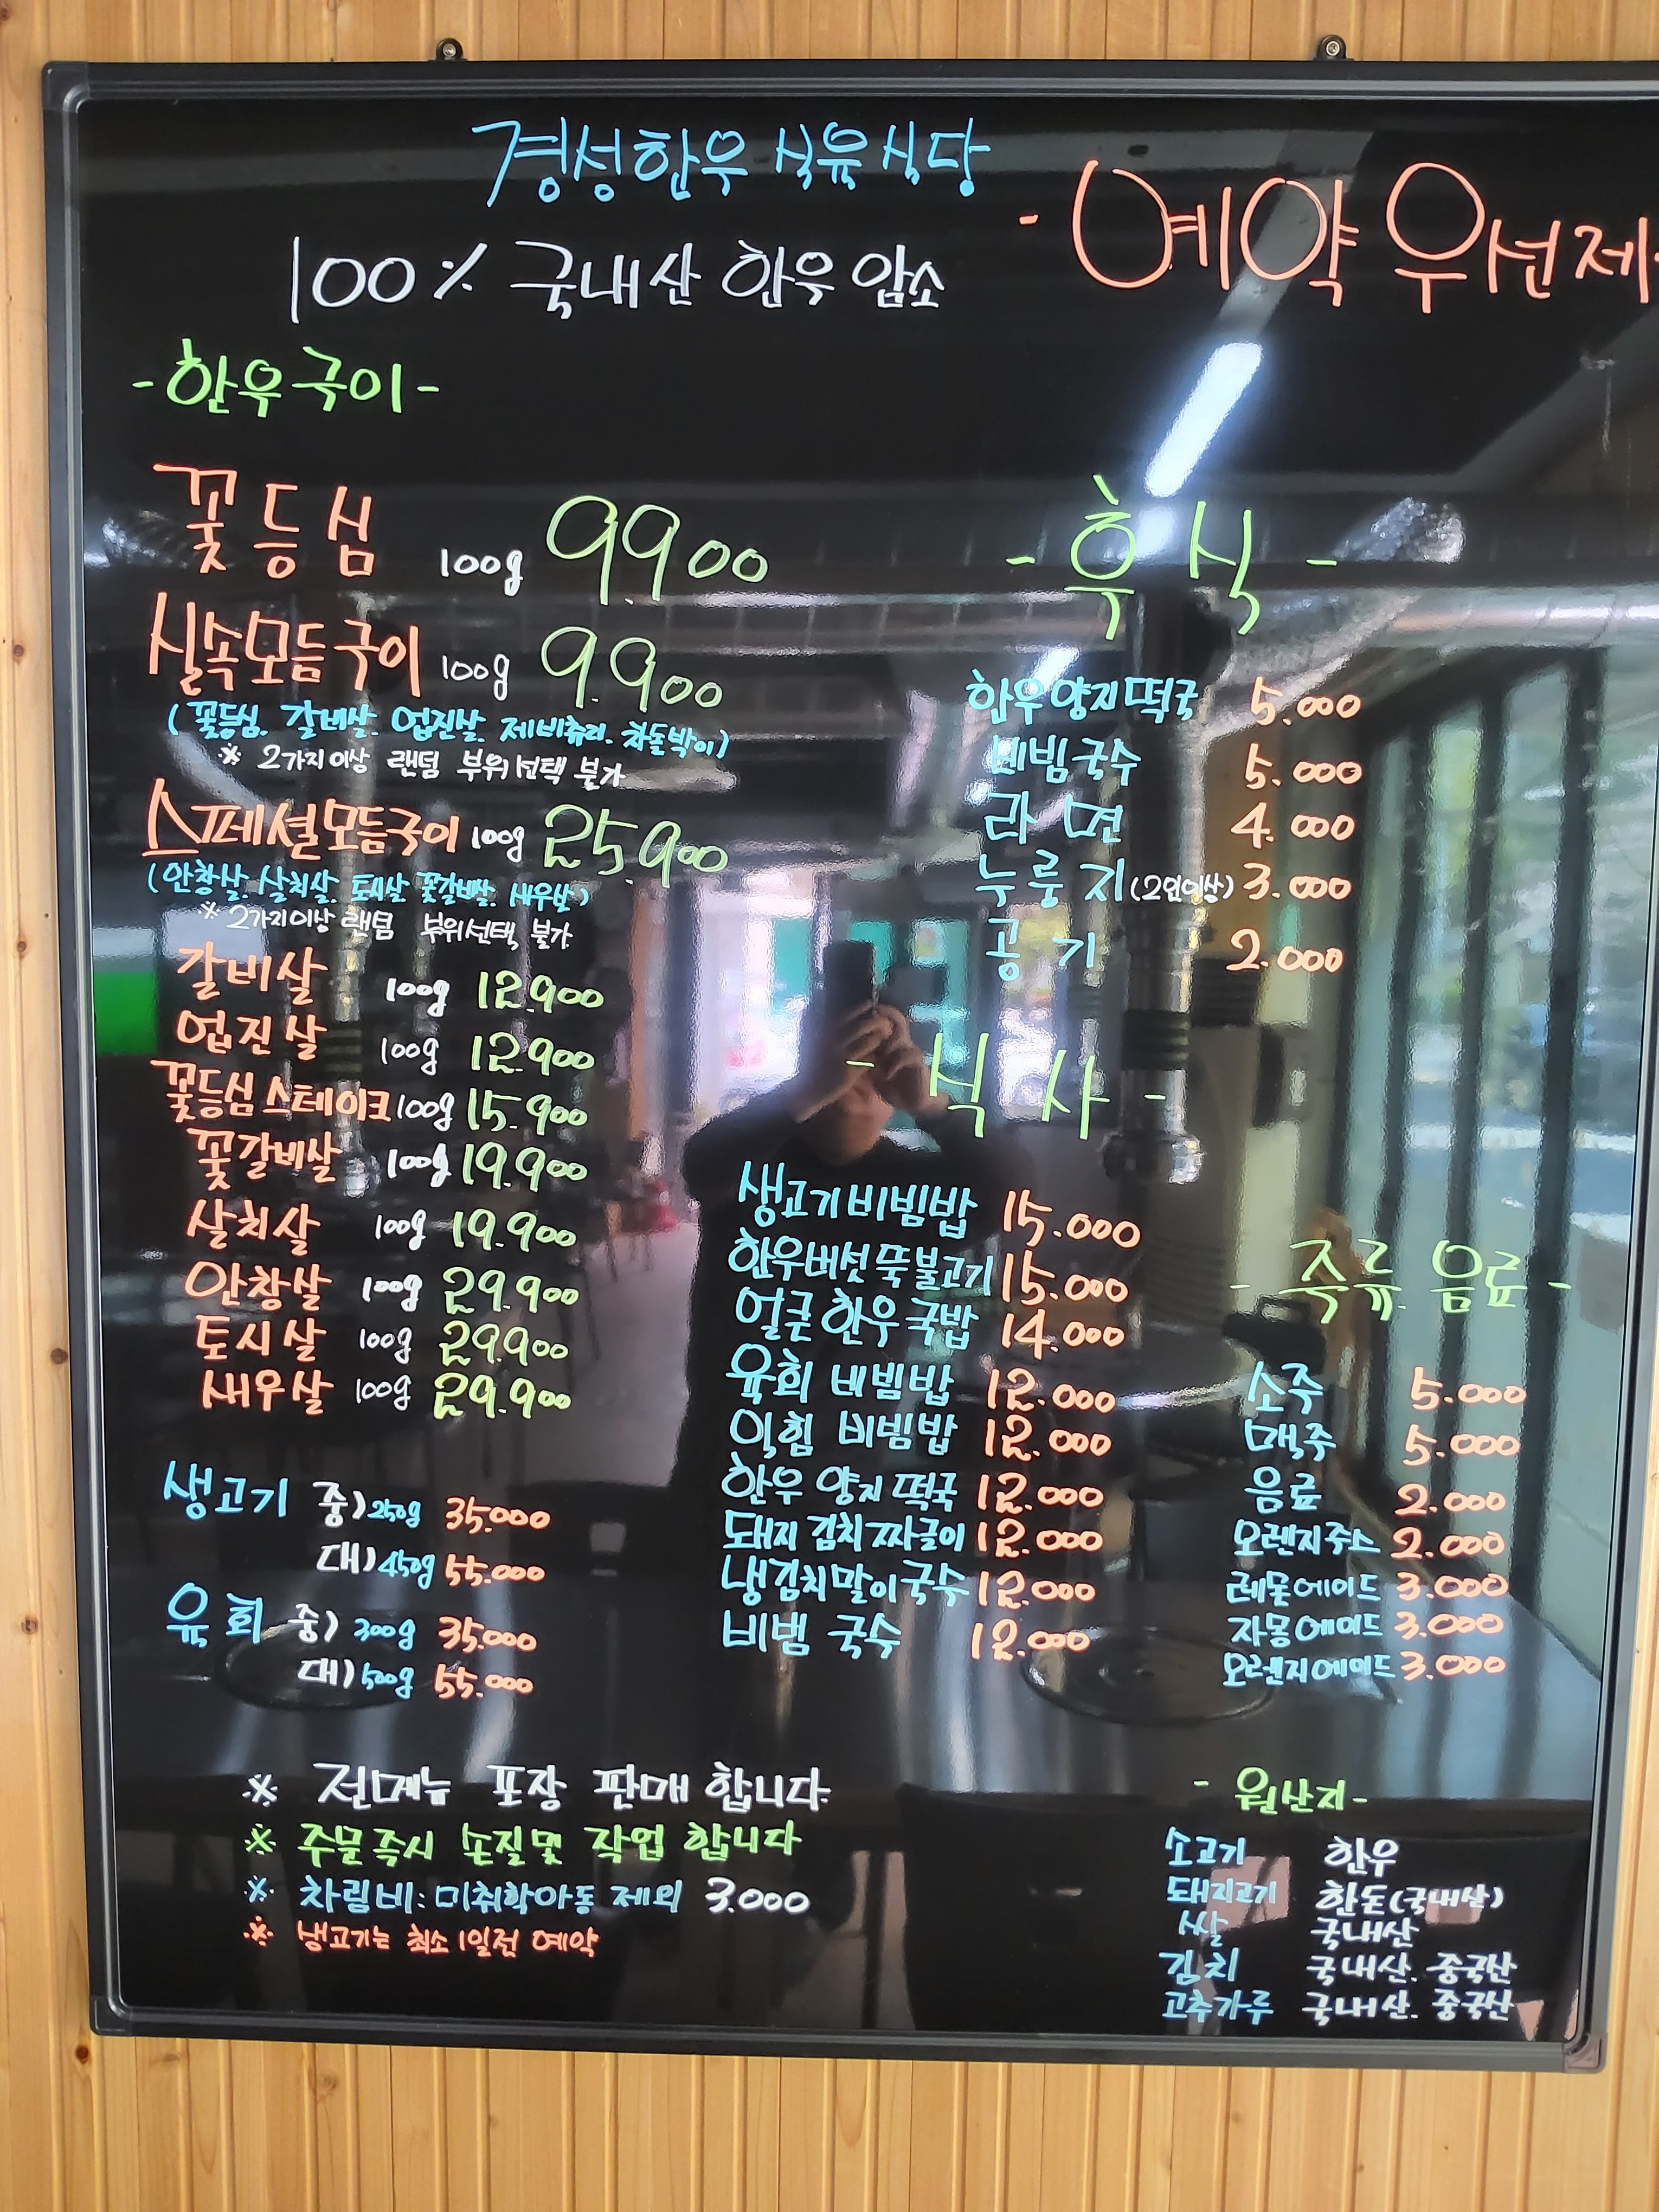 경성한우 식육식당
- 예약 우선제 -
100% 국내산 한우 암소
- 한우구이 -
꽃등심 100g 9.900
실속모듬구이 100g 9.900
(꽃등심. 갈비살. 업진살. 제비츄리. 차돌박이)
※ 2가지이상 랜덤 부위선택 불가
스페셜모듬구이 100g 25.900
(안창살. 살치살. 토시살. 꽃갈비살. 새우살)
※ 2가지이상 랜덤 부위선택 불가
갈비살 100g 12.900
업진살 100g 12.900
꽃등심스테이크 100g 15.900
꽃갈비살 100g 19.900
살치살 100g 19.900
안창살 100g 29.900
토시살 100g 29.900
새우살 100g 29.900
생고기 중) 250g 35.000
대) 450g 55.000
육회 중) 300g 35.000
대) 500g 55.000
- 후식 -
한우양지떡국 5.000
비빔국수 5.000
라면 4.000
누룽지 (2인이상) 3.000
공기 2.000
- 식사 -
생고기비빔밥 15.000
한우버섯뚝불고기 15.000
얼큰 한우 국밥 14.000
육회 비빔밥 12.000
익힘 비빔밥 12.000
한우 양지 떡국 12.000
돼지 김치 짜글이 12.000
냉김치말이국수 12.000
비빔 국수 12.000
- 주류. 음료 -
소주 5.000
맥주 5.000
음료 2.000
오렌지주스 2.000
레몬에이드 3.000
자몽에이드 3.000
오렌지에이드 3.000
※ 전메뉴 포장 판매 합니다
※ 주문즉시 손질및 작업 합니다
※ 차림비: 미취학아동 제외 3.000
※ 생고기는 최소 1일전 예약
- 원산지 -
소고기 한우
돼지고기 한돈(국내산)
쌀 국내산
김치 국내산. 중국산
고추가루 국내산. 중국산